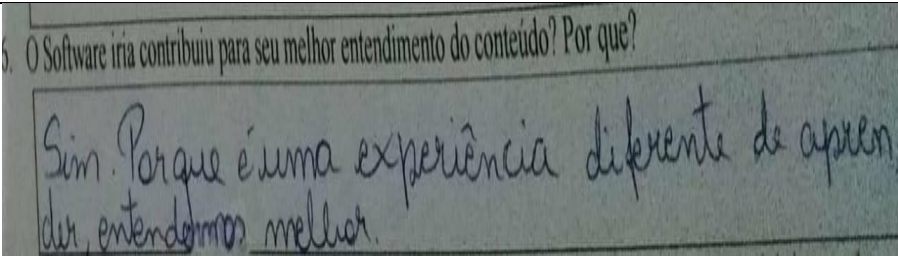 5. O Software iria contribuiu para seu melhor entendimento do conteúdo? Por que?
Sim. Porque é uma experiência diferente de apren
der, entendemos melhor.